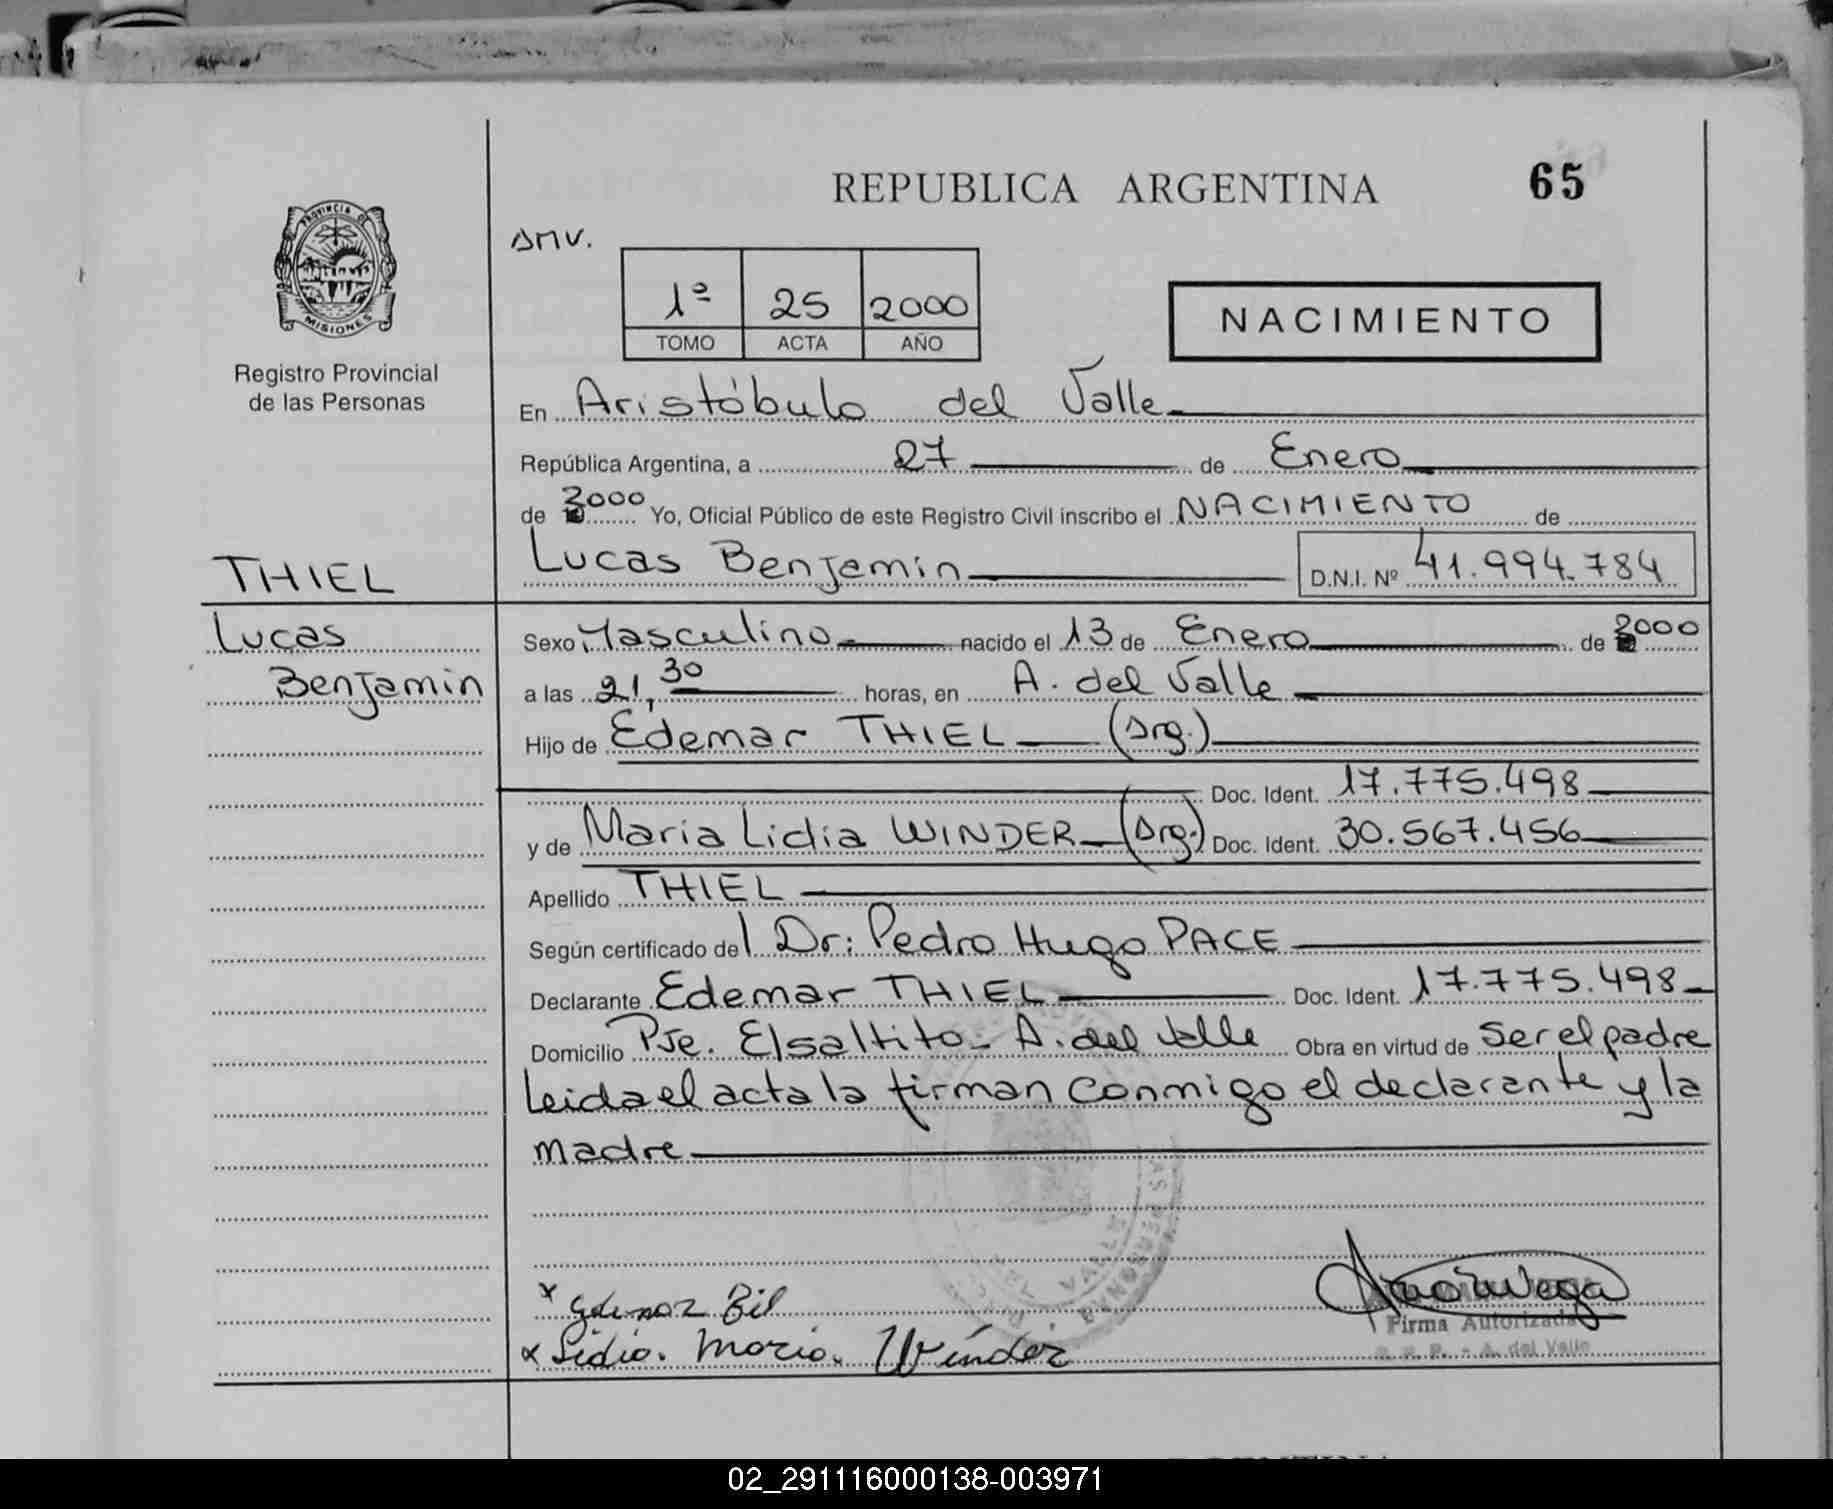 REPUBLICA ARGENTINA 65
PROVINCIA DE
MISIONES
Registro Provincial
de las Personas
1º 25 2000
TOMO ACTA AÑO
NACIMIENTO
En Aristóbulo del Valle
República Argentina, a 27 de Enero
de 2000 Yo, Oficial Público de este Registro Civil inscribo el NACIMIENTO de
THIEL
Lucas Benjamin
Lucas Benjamin D.N.I. Nº 41.994.784
Sexo Masculino nacido el 13 de Enero de 2000
a las 21,30 horas, en A. del Valle
Hijo de Edemar THIEL (Arg.)
Doc. Ident. 17.775.498
y de Maria Lidia WINDER (Arg.) Doc. Ident. 30.567.456
Apellido THIEL
Según certificado del Dr: Pedro Hugo PACE
Declarante Edemar THIEL Doc. Ident. 17.775.498
Domicilio Pje. Elsaltito - A. del Valle Obra en virtud de ser el padre
Leida el acta la firman conmigo el declarante y la
madre
x
x Lidia. Maria. Winder
Firma Autorizada
A. del Valle
02_291116000138-003971